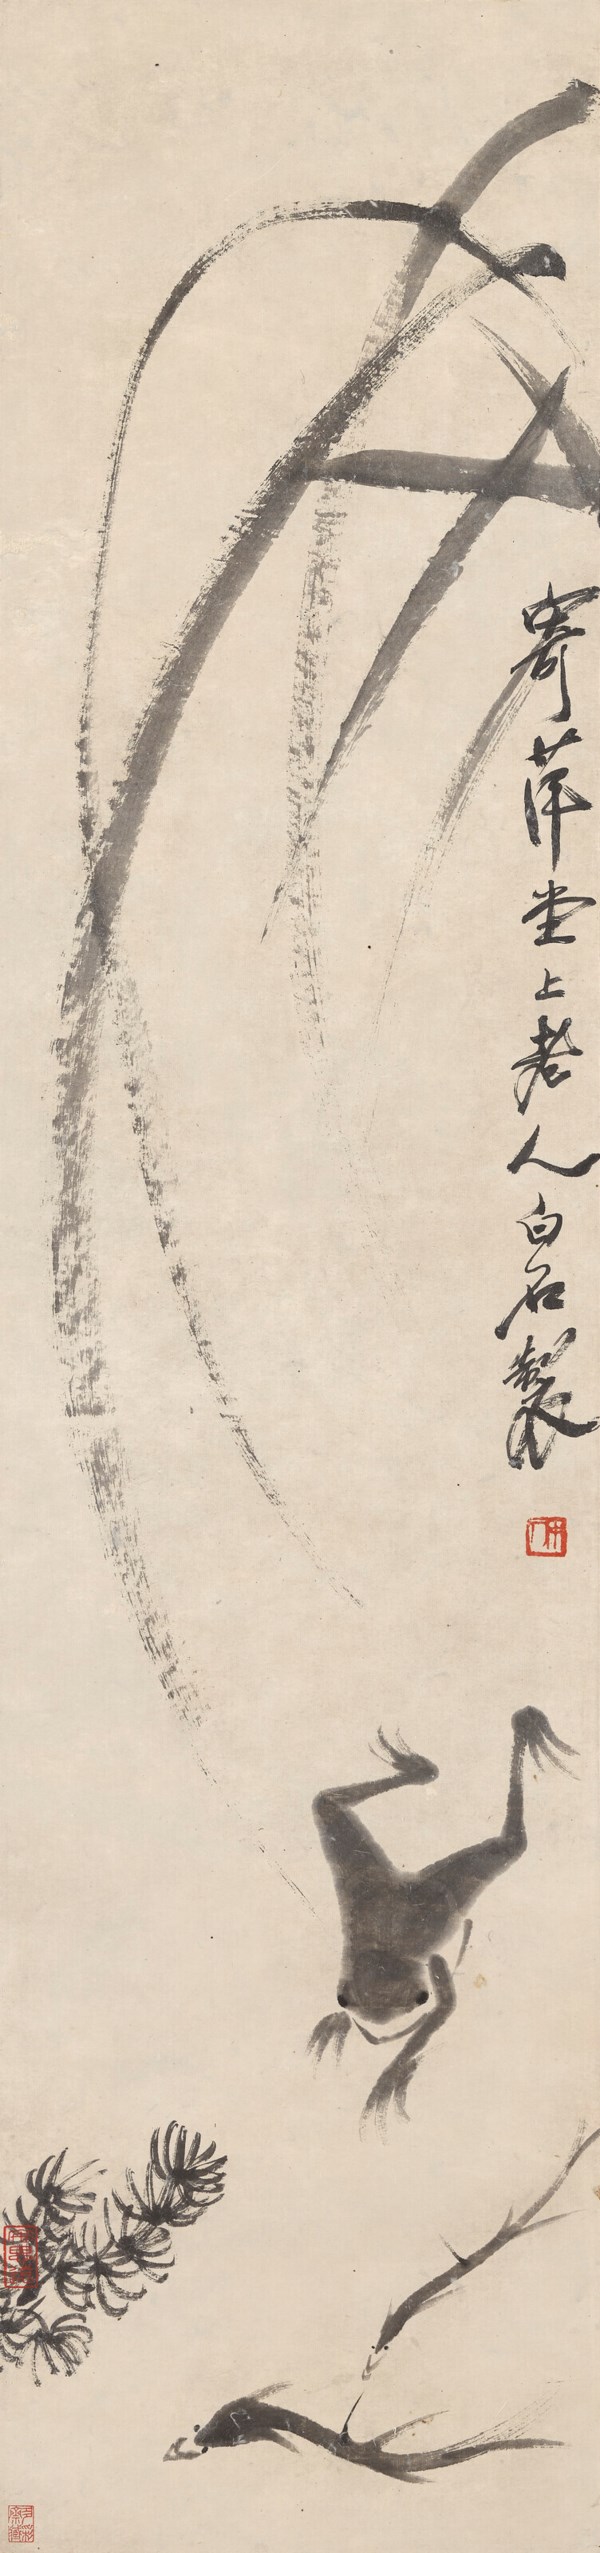 寄萍堂上老人白石製